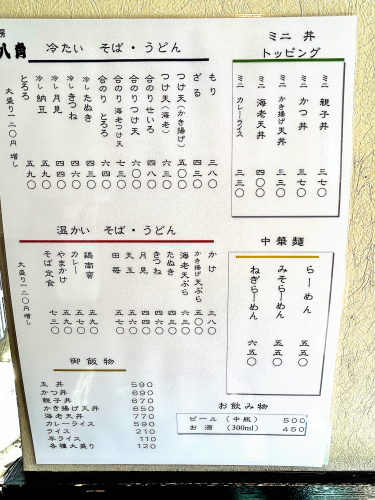 八角
冷たい そば・うどん
もり 三八〇
ざる 四三〇
つけ天(かき揚げ)
つけ天(海老) 六三〇
合のりせいろ 四八〇
合のりつけ天
合のり海老つけ天 七三〇
合のりとろろ 六四〇
冷したぬき 四四〇
冷しきつね 四四〇
冷し月見 四四〇
冷し納豆 五九〇
とろろ 五九〇
大盛り一二〇円増し
ミニ丼
トッピング
ミニ親子丼 三七〇
ミニかつ丼 三七〇
ミニかき揚げ天丼 三三〇
ミニ海老天丼 四〇〇
ミニカレーライス 三三〇
温かい そば・うどん
かけ 三八〇
かき揚げ天ぷら 五〇〇
海老天ぷら 六三〇
たぬき 四四〇
きつね 四四〇
月見 四四〇
天玉
田毎
鶏南蛮 五九〇
カレー 五九〇
やまかけ
そば定食 七三〇
大盛り一二〇円増し
中華麺
らーめん 五五〇
みそらーめん 五五〇
ねぎらーめん 六五〇
御飯物
玉丼 590
かつ丼 690
親子丼 670
かき揚げ天丼 650
海老天丼 770
カレーライス 590
ライス 210
半ライス 110
各種大盛り 120
お飲み物
ビール (中瓶) 500
お酒 (300ml) 450